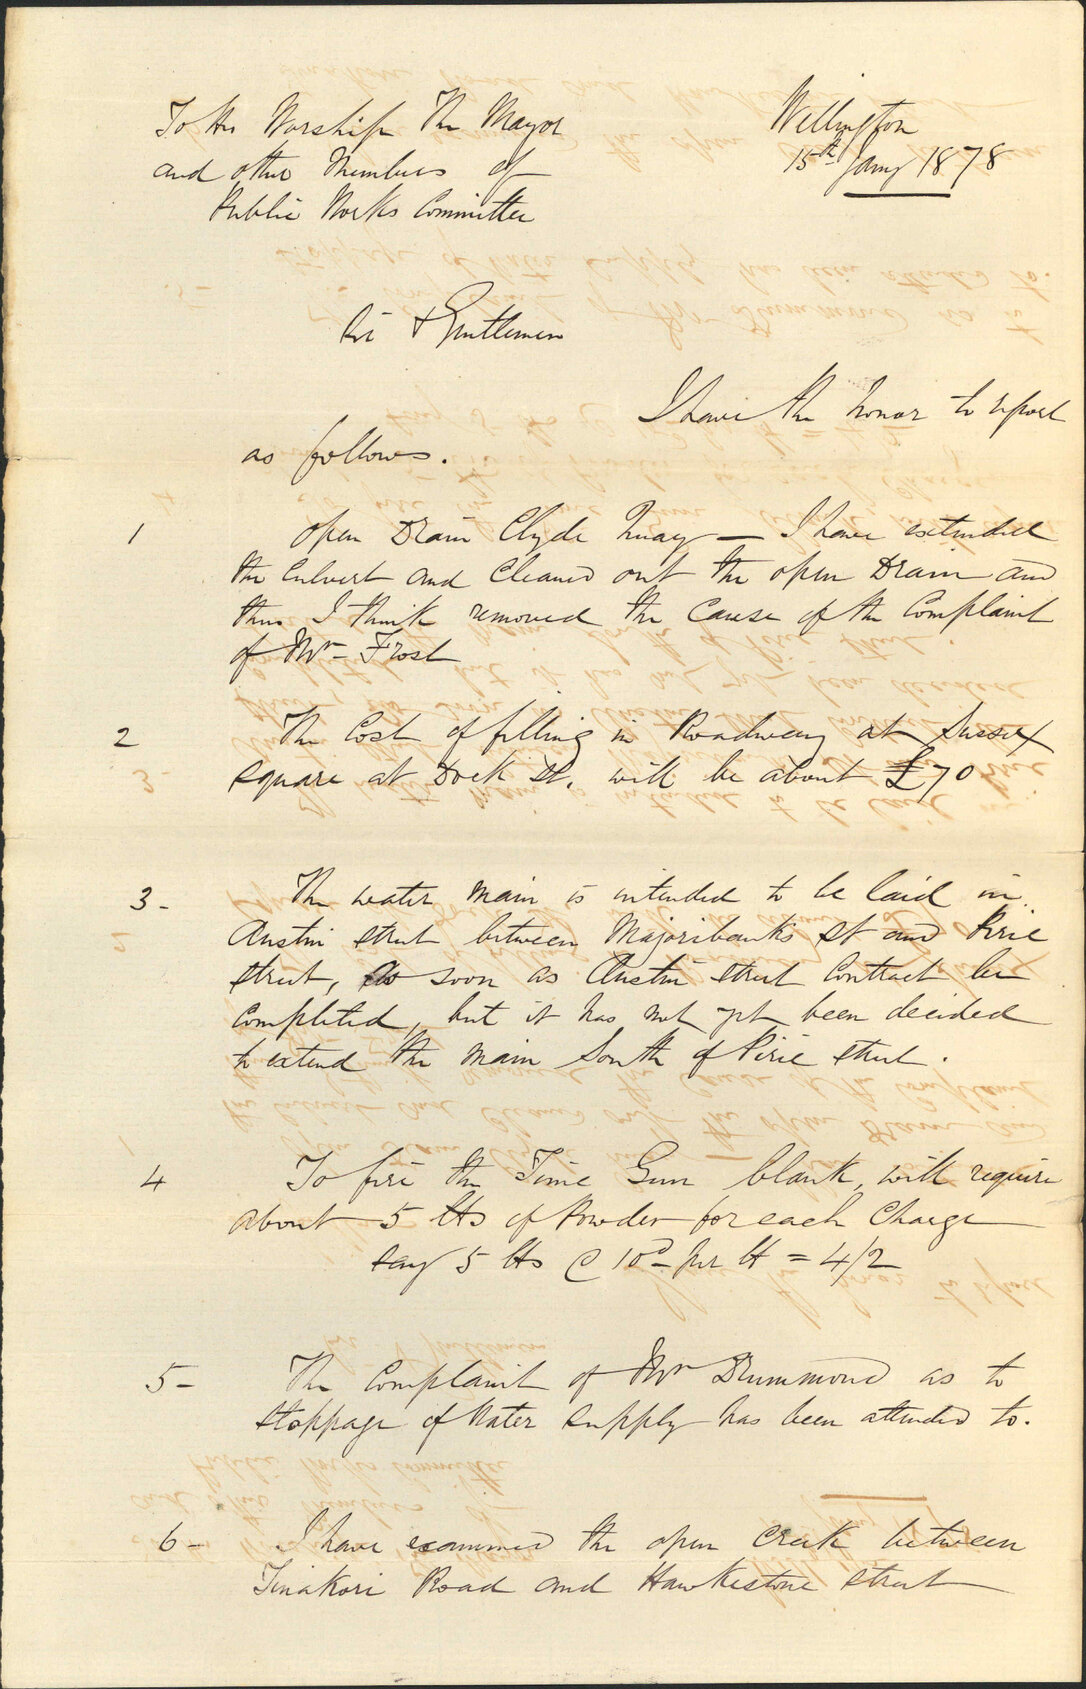 Wellington
15th Jany 1878
To His Worship The Mayor
and other Members of
Public Works Committee
Sir & Gentlemen
I have the honor to report
as follows.
1 Open Drain Clyde Quay — I have extended
the Culvert and Cleaned out the open Drain and
thus I think removed the Cause of the Complaint
of Mr Frost
2 The Cost of filling in Roadway at Sussex
Square at Dock St. will be about £70
3- The water main is intended to be laid in
Austin Street between Majoribanks St and Pirie
Street, as soon as Austin Street Contract be
Completed, but it has not yet been decided
to extend the main South of Pirie Street.
4 To fire the Time Gun blank, will require
about 5 lbs of Powder for each Charge
say 5 lbs @ 10d per lb = 4/2
5- The Complaint of Mr Drummond as to
stoppage of Water supply has been attended to.
6- I have examined the open Creek between
Tinakori Road and Hawkestone Street